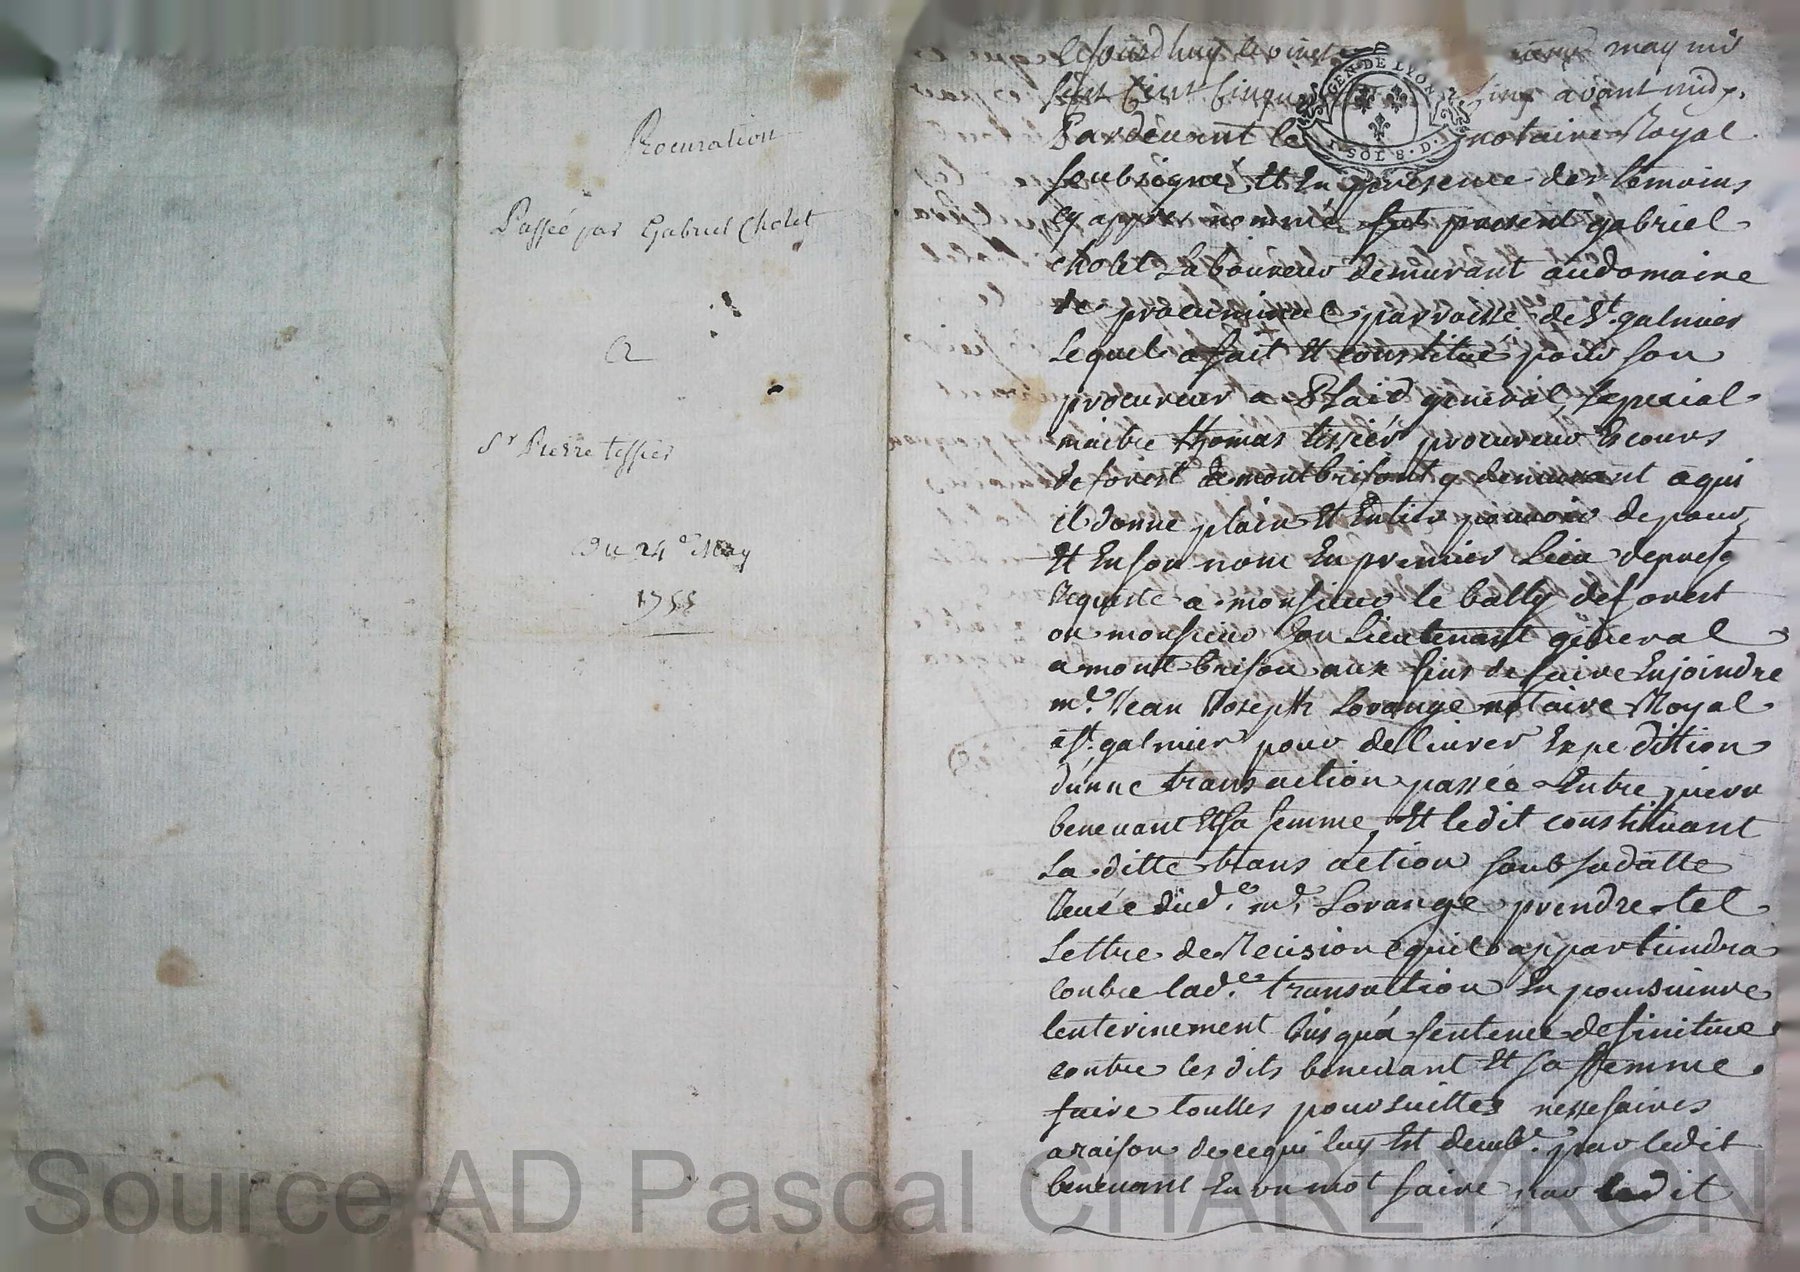 Procuration
Passée par Gabriel Cholet
a
Sr Pierre tessier
Du 24e May
1755
Cejourdhuy le vingt may mil
sept Cent Cinqu avant midy.
Pardevant le notaire Royal
soubsigné, Et En presence des temoins
cy apprer nommé fut present gabriel
cholet Laboureur demurant audomaine
de parroisse de St. galmier
Lequel a fait Et constitué pour son
procureur a general, Special
maitre thomas tissier procureur Es cours
de forest de montbrison y demeurant a qui
il donne plain Et Entier pouvoir de pour
Et En son nom En premier Lieu de
Requeste a monsieur le bally deforest
ou monsieur son Lieutenant general
a mont-brison aux fins de faire Enjoindre
me. Jean Joseph Lorange notaire Royal
a St. galmier pour delivrer Expedition
dunne transaction passée Entre pierre
benevant Et sa femme, Et ledit constituant
La ditte trans action soub sadatte
Reçüe dud. me. Lorange prendre tel
Lettre de Recision quil appartiendra
contre lade. transaction En poursuivre
lenterinement Jusqua sentence definitive
contre les dits benevant Et sa ffemme.
faire touttes poursuittes nessesaires
a raison de ce qui luy Est deub. par ledit
benevant En un mot faire par ledit
GEN. DE LYON
1. SOL 8. D.
Source AD Pascal CHAREYRON